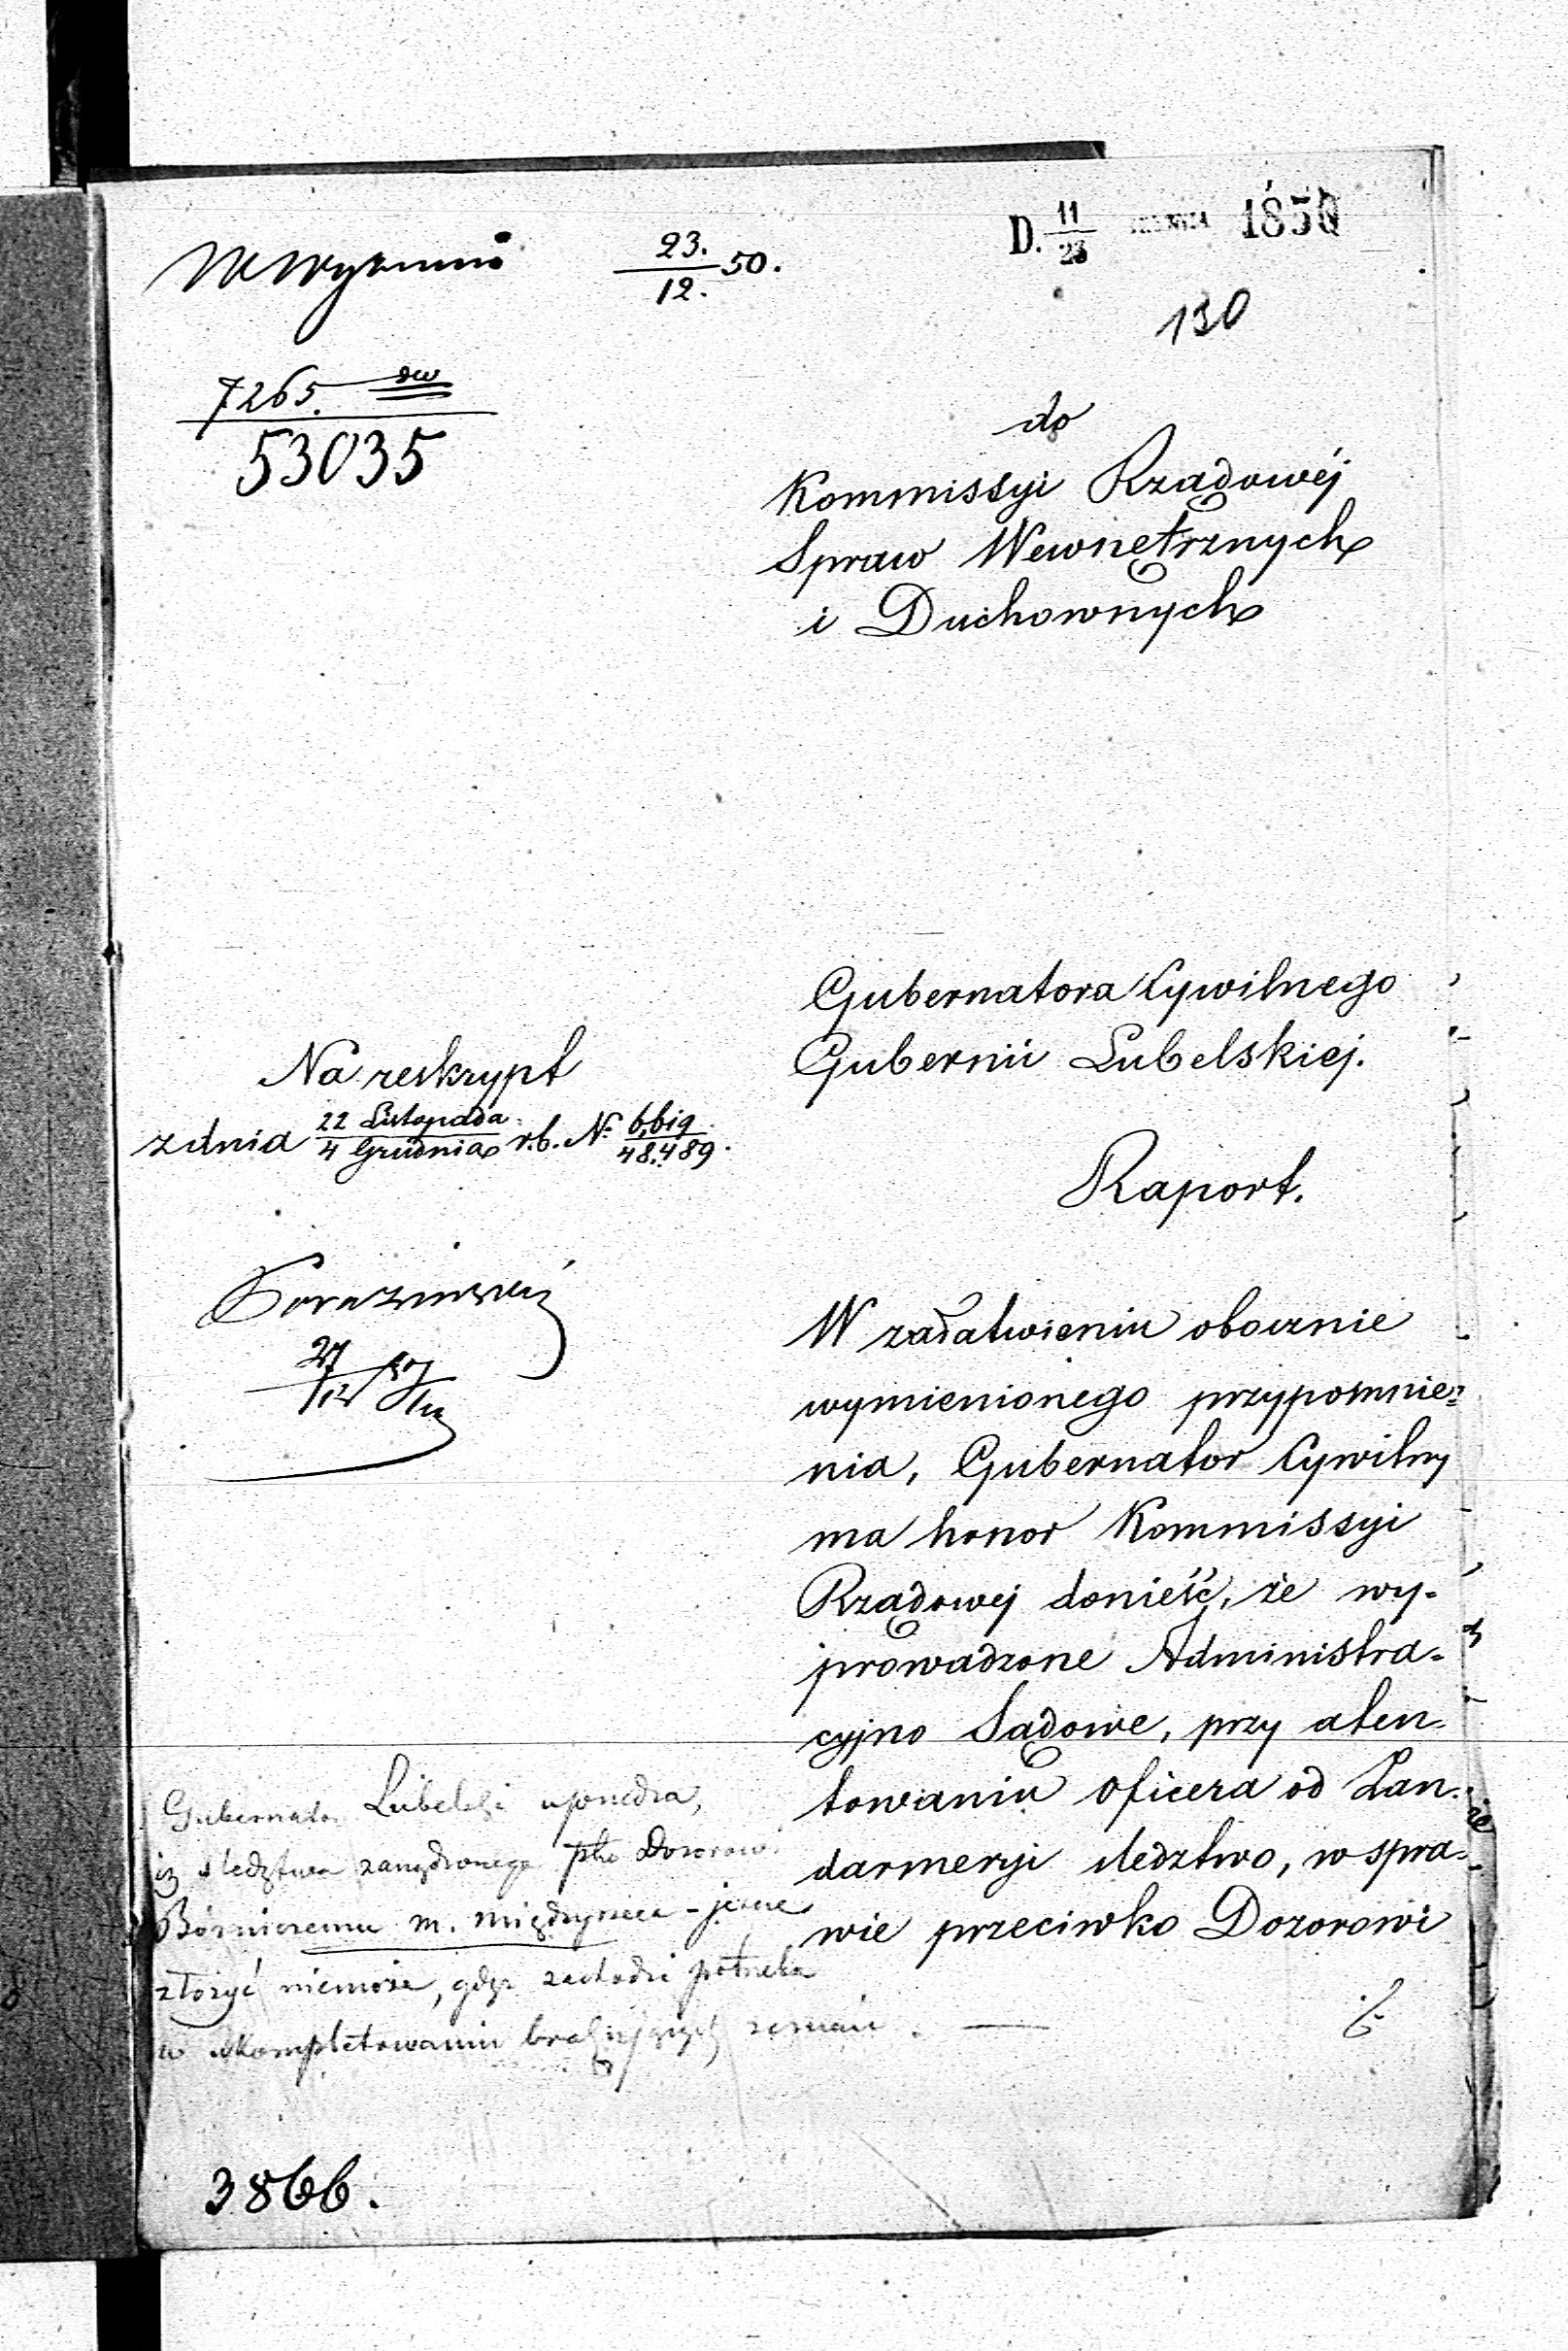 23.
12. 50.
D. 11
23 1850
130
7265. dw
53035
do
Kommissyi Rządowéj
Spraw Wewnętrznych
i Duchownych
Gubernatora Cywilnego
Gubernii Lubelskiej.
Na reskrypt
z dnia 22 Listopada
4 Grudnia r.b. N.
48.489.
Raport.
27
12
W załatwieniu obocznie
wymienionego przypomnie=
nia, Gubernator Cywilny
ma honor Kommissyi
Rządowej donieść, że wy-
prowadzone Administra-
cyjno Sądowie, przy aten-
towaniu oficera od Żan-
darmeryi śledztwo, w spra-
wie przeciwko Dozorowi
Gubernator Lubelski
iż śledztwa zarządzonego pko Dozorowi
Bóżniczemu m. Międzyrzeca - jeszcze
złożyć niemoże, gdyż zachodzi potrzeba
w skompletowaniu brakujących zeznań. —
3866.